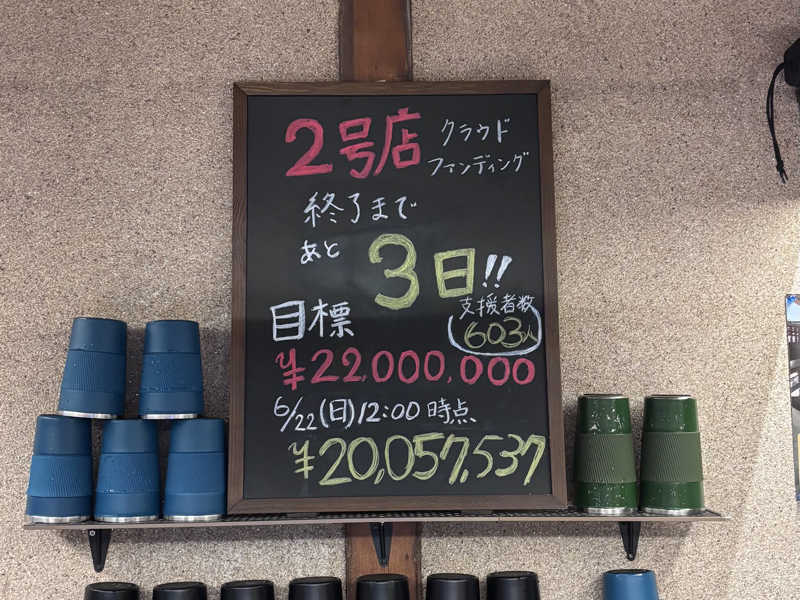 2号店 クラウド
ファンディング
終了まで
あと 3日!!
支援者数
目標 603人
¥22,000,000
6/22(日)12:00時点
¥20,057,537